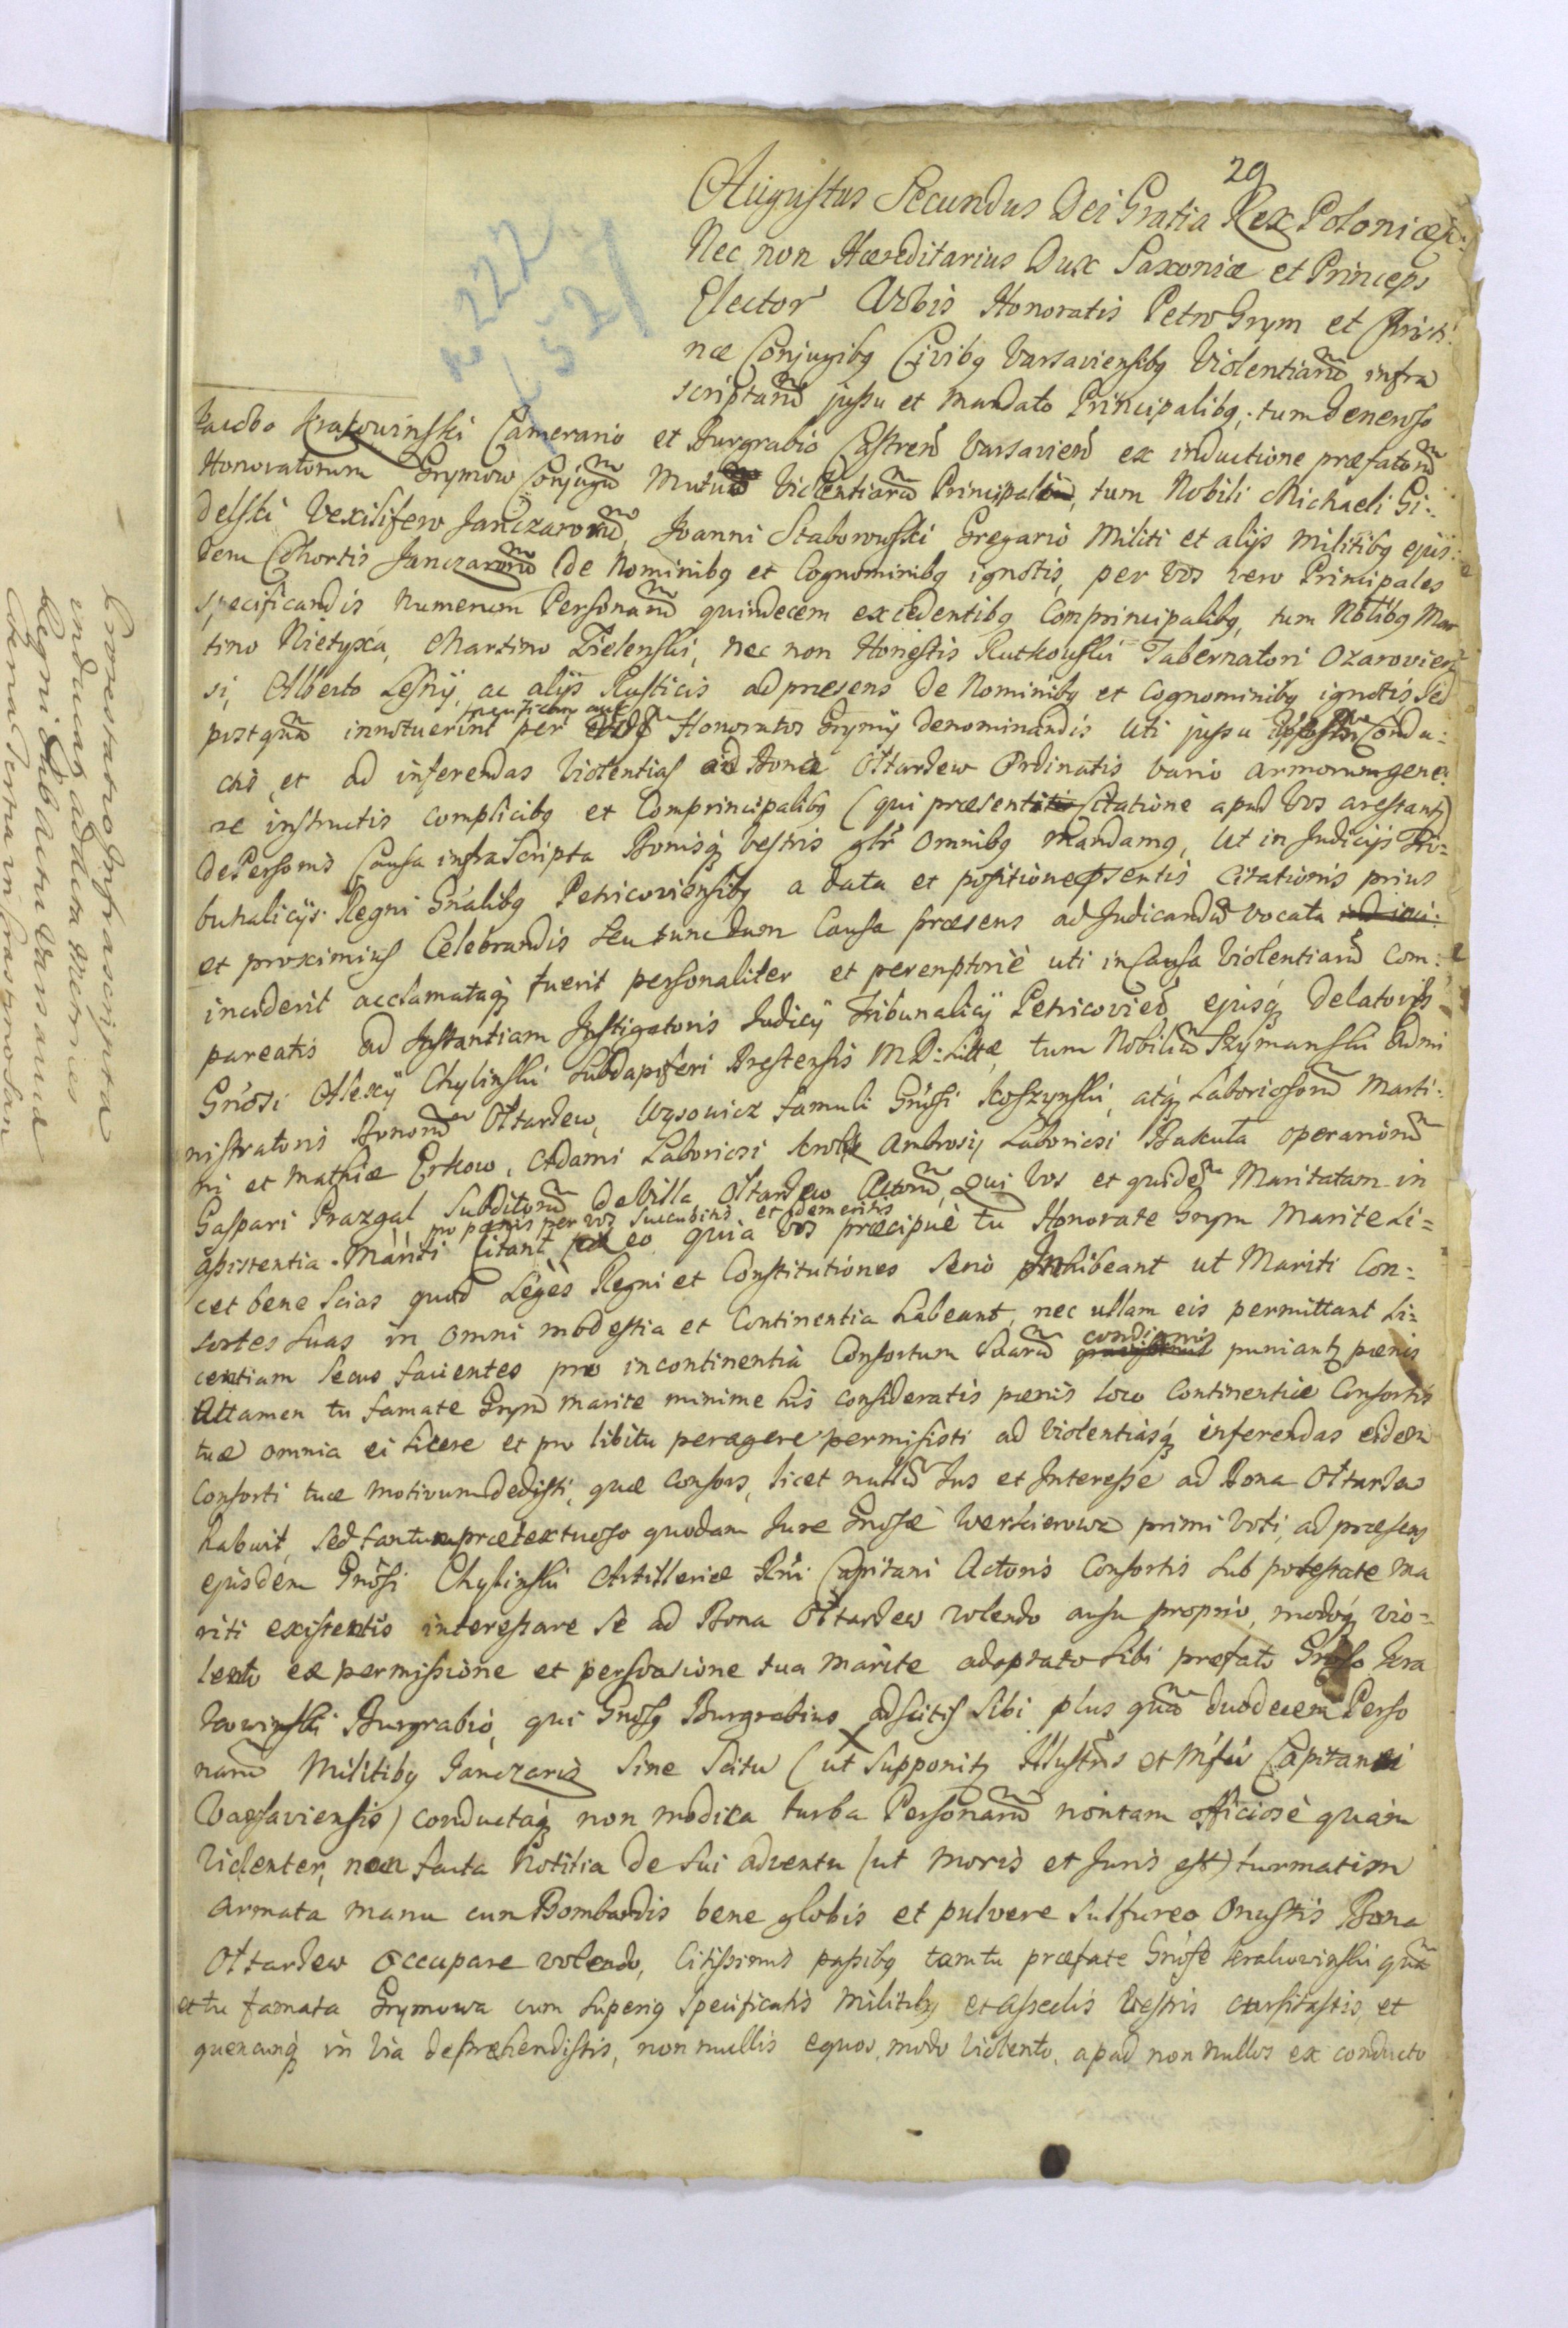 29
Augustus Secundus Dei Gratia Rex Poloniæ
Nec non Hæreditarius Dux Saxoniæ et Princeps
Elector Vobis Honoratis Petro Grym et Christi:
næ Conjugibq Civibq Varsaviensibq Violentiarũ infra
scriptarũ jussu et mandato Principalibq, tum Generoso
Jacobo Krakowinski Camerario et Burgrabio Castren Varsavien ex inductione præfatorũ
Honoratorum Grymow Conjugũ Mutuo Violentiarũ Principaliũ, tum Nobili Michaeli Gi:
delski Vexilifero Janczarorũ, Joanni Staborowski Gregario Militi et alijs Militibq ejus:
dem Cohortis Janczarorũ de Nominibq et Cognominibq ignotis, per Vos vero Principales
specificandis numerum Personarũ quindecem excedentibq Comprincipalibq, tum Nobilibq Mar
tino Nietyxa, Martino Zielenski, nec non Honestis Rutkowski Tabernatori Ozarovien
si, Alberto Lesny, ac alijs Rusticis ad præsens de Nominibq et Cognominibq ignotis, sed
postquã innotuerint per Honoratos Grymy denominandis Uti jussu Condu:
ctis, et ad inferendas Violentias ad Bona Ołtarzew Ordinatis Vario armorum gene
re instructis complicibq et Comprincipalibq (qui præsenti Citatione apud Vos arestantq)
de Personis Causa infra Scripta Bonisq Vestris gľr omnibq mandamq, Ut in Judicijs Tri:
bunalicijs Regni Gnalibq Petricoviensibq a data et positione psentis Citationis prius
et proximius Celebrandis seu tunc dum Causa præsens ad Judicandũ vocata
inciderit acclamataq fuerit personaliter et peremptorie uti in Causa Violentiarũ Com:
pareatis ad Instantiam Instigatoris Judicij Tribunalicij Petricovien ejusq Delatoris
Gnosi Alexij Chylinski Subdapiferi Brestensis M D: Littæ, tum Nobiliũ Szymanski Admi
nistratoris Bonorũ Ołtarzew, Wysowicz famuli Gnosi Koszynski, atq Laboriosorũ Marti:
ni et Mathiæ Erkow, Adami Laboriosi Ambrosij Laboriosi Bakuła operariorũ
Gaspari Prazgal Subditorũ de Villa Ołtarzew Actorũ, Qui Vos et quidẽ Maritatam in
pro pœnis per vos succubitis et demeritis
assistentia Mariti Citant eo quia Vos præcipue tu Honorate Grym Marite Li=
cet bene Scias quod Leges Regni et Constitutiones serio prohibeant ut Mariti Con:
sortes suas in omni modestia et Continentia habeant, nec ullam eis permittant Li=
centiam secus facientes pro incontinentia Consortum suarũ condignis puniantq pœnis
Attamen tu famate Grym Marite minime his consideratis pœnis loco Continentiæ Consortis
tuæ omnia ei licere et pro libitu peragere permisisti ad Violentiasq inferendas eidem
Consorti tuæ motivum dedisti, quæ Consors, licet nullũ Jus et Interesse ad Bona Ołtarzew
habuit, sed tantum prætextuoso quodam Jure Gnosæ Werkierowa primi Voti, ad præsens
ejusdem Gnosi Chylinski Artilleriæ Rni Capitani Actoris Consortis sub potestate ma
riti existentis interessare se ad Bona Ołtarzew volendo ausu proprio, modoq vio=
lento ex permissione et persuasione tua Marite adoptato sibi prefato Gnoso Kra
kowinski Burgrabio, qui Gnosq Burgrabius adscitis sibi plus quã duodecem Perso
narũ Militibq Janczaris sine scitu (ut supponitq Illustris et Mfci Capitanei
Varsaviensis) conductaq non modica turba Personarũ non tam officiose quam
Violenter, non facta Notitia de sui adventu (ut moris et Juris est) turmatim
armata manu cum Bombardis bene globis et pulvere sulfureo Onustis Bona
Ołtarzew occupare volendo, Citissimis passibq tam tu præfate Gnose Krakowinski quã
et tu famata Grymowa cum superiq specificatis Militibq et asseclis Vestris cursitastis, et
quencunq in Via deprehendistis, non nullis equos modo Violento, apud non nullos ex conducto